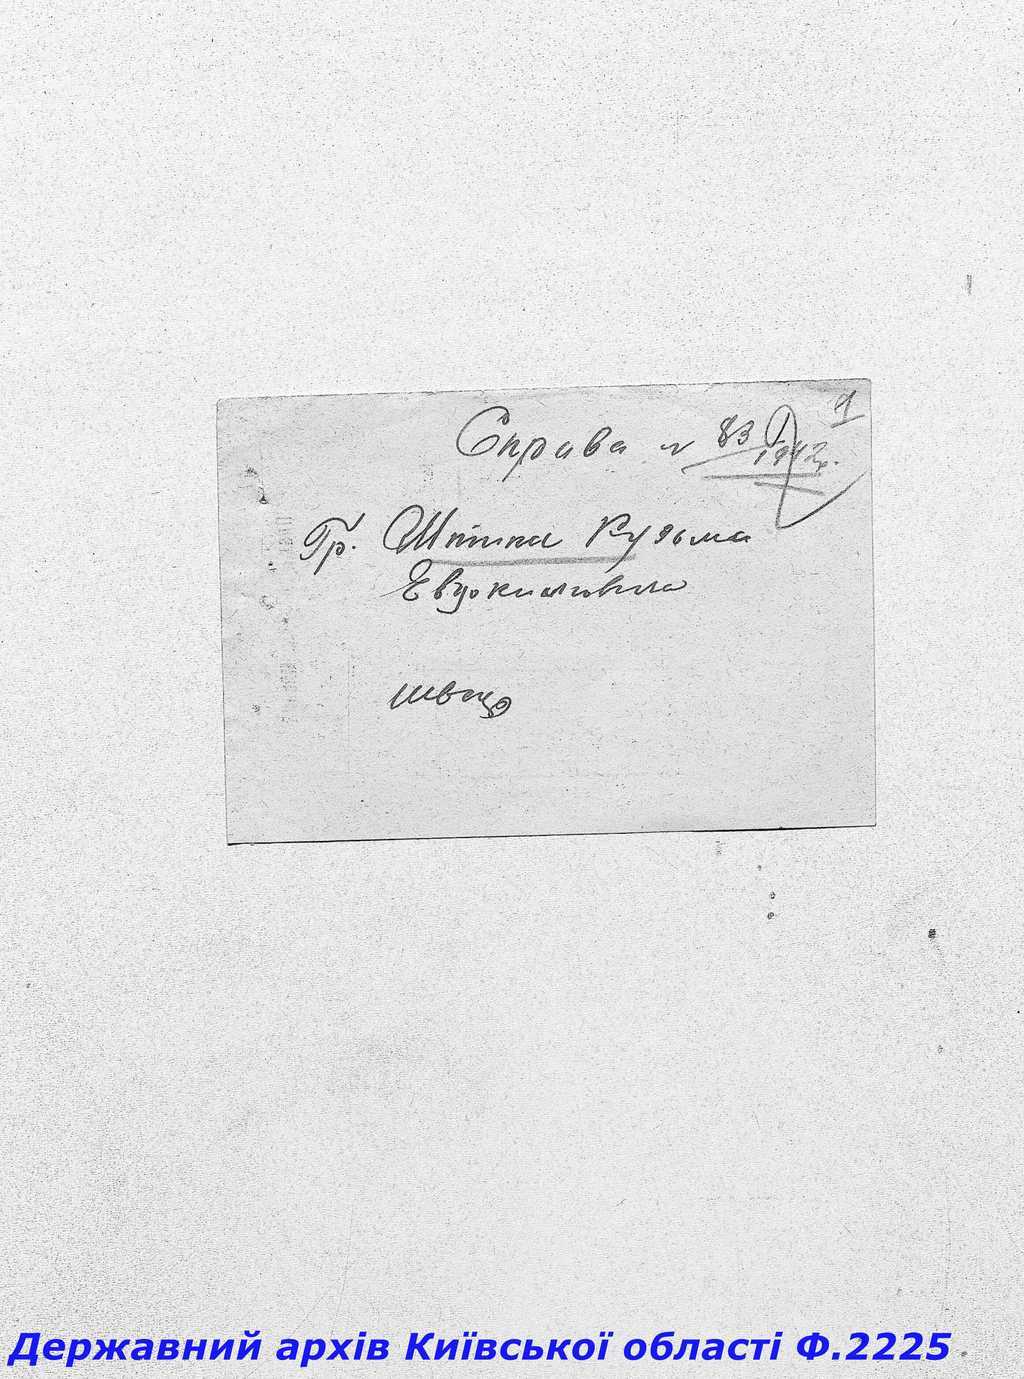 1
Справа № 83
1942р.
Гр. Кузьма
Евдокимовича
швець
Державний архів Київської області Ф.2225